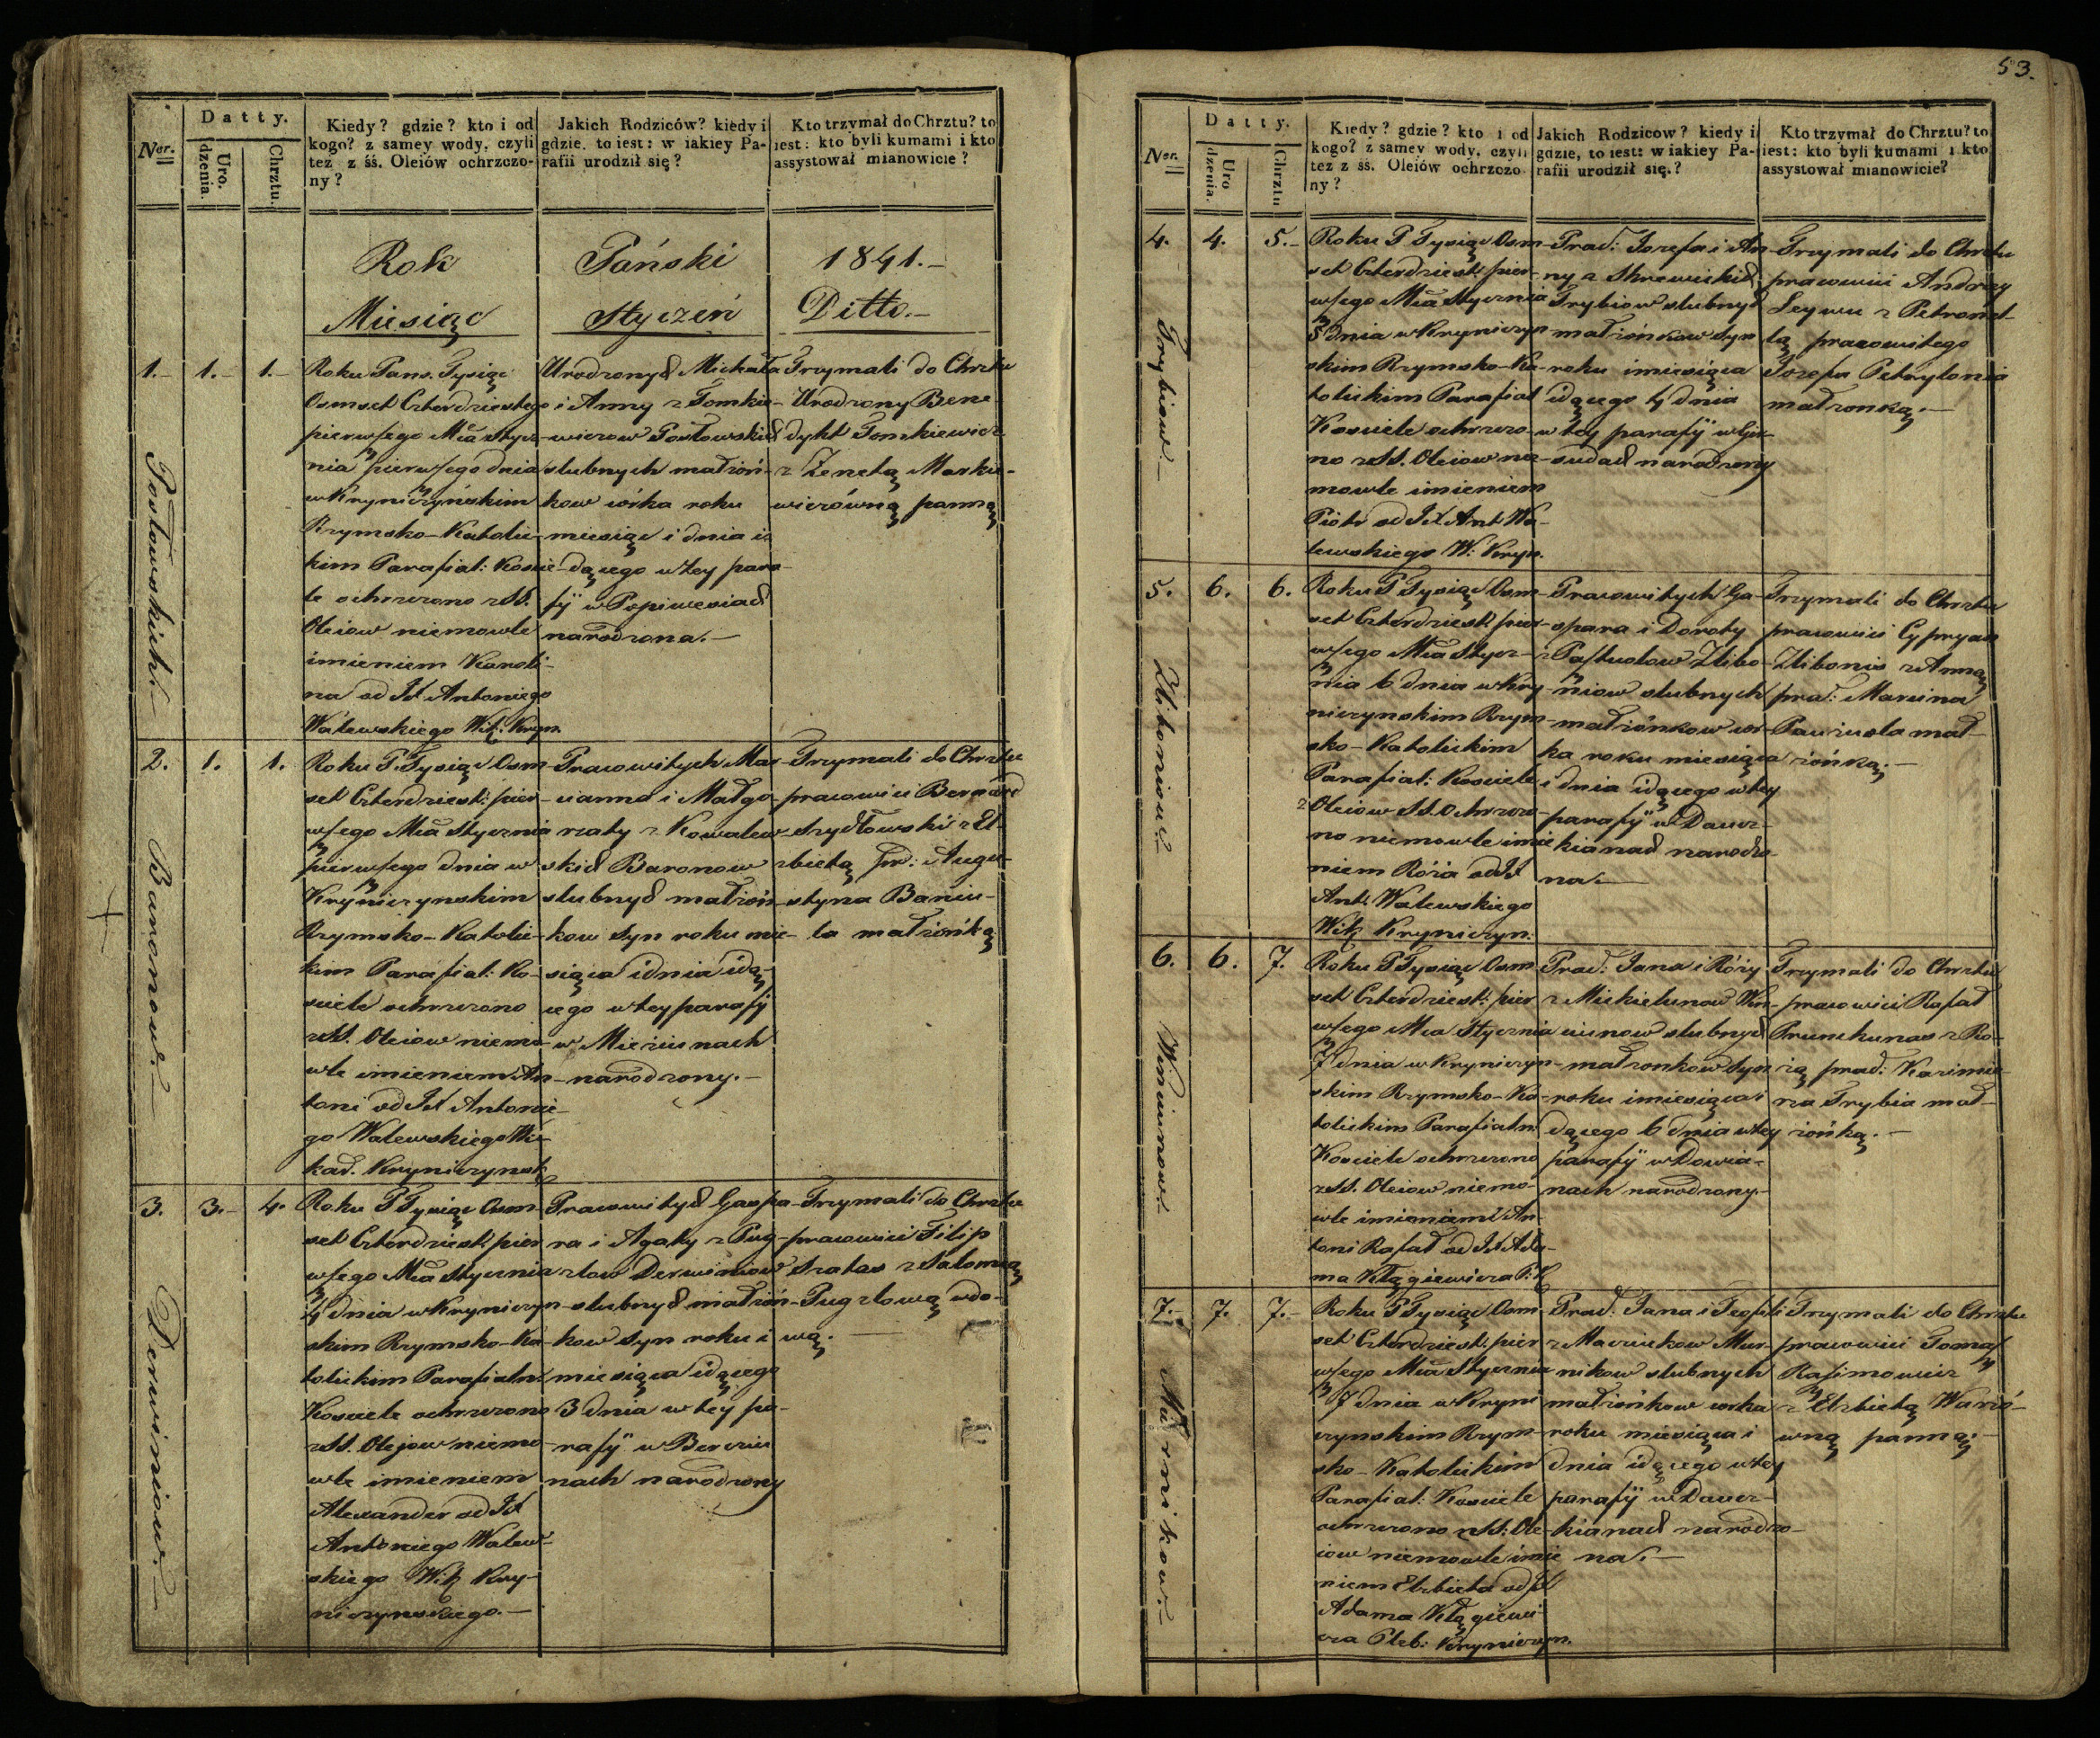 53.
Ner.
Datty.
Uro.
dzenia.
Chrztu.
Kiedy? gdzie? kto i od
kogo? z samey wody, czyli
tez z śś. Oleiów ochrzczo-
ny?
Jakich Rodziców? kiedy i
gdzie, to iest: w iakiey Pa-
rafii urodził się?
Kto trzymał do Chrztu? to
iest: kto byli kumami i kto
assystował mianowicie?
Rok Pański 1841.-
Miesiąc Styczeń Ditto.-
1.- 1.- 1.-
Postowskich.-
Roku Pans. Tysiąc
Osmset Czterdziestego
pierwszego Mca stycz-
nia pierwszego dnia
w Krynicźyńskim
Rzymsko-Katolic-
kim Parafial: Koście-
le ochrzczono z SS.
Oleiow niemowle
imieniem Karoli-
na od JX Antoniego
Walewskiego Wik: Kryn.
Urodzonych Michała
i Anny z Tomkie-
wiczow Postowskich
slubnych małżon-
kow córka roku
miesiąc i dnia i-
dącego w tey para-
fij w Popiwesiach
narodzona.-
Trzymali do Chrztu
Urodzony Bene-
dykt Tomkiewicz
z Zenetą Marku-
wiczówną panną
2. 1. 1.
Baronow.-
Roku P. Tysiąc Osm-
set Czterdziest: pier-
wszego Mca Stycznia
pierwszego dnia w
Krynicżynskim
Rzymsko-Katolic-
kim Parafial: Ko-
sciele ochrzczono
z SS. Oleiow niemo-
wle imieniem An-
toni od JX Antonie-
go Walewskiego Wi-
kad. Krynicżynsk
Pracowitych Mar-
cianna i Małgo-
rzaty z Kowalew-
skich Baronow
slubnych małżon-
kow syn roku mie-
siąca i dnia idą-
cego w tey parafij
w Mieżiunach
narodzony.-
Trzymali do Chrztu
pracowici Bernard
Szydłowski z El-
zbietą pr: Augu-
styna Baniu-
la małżonką
3. 3.- 4.
Derwiniow.-
Roku P Tysiąc Osm-
set Czterdziest: pier-
wszego Mca Stycznia
4 dnia w Krynicżyn-
skim Rzymsko-Ka-
tolickim Parafialn:
Kosciele ochrzczono
z SS. Olejow niemo-
wle imieniem
Alexander od JX
Antoniego Walew-
skiego Wik Kry-
nicżynskiego.-
Pracowitych Gaspa-
ra i Agaty z Pug-
zlow Derwiniow
slubnych małżon-
kow syn roku i
miesiąca idącego
3 dnia w tey pa-
rafij w Berżiu-
nach narodzony
Trzymali do Chrztu
pracowici Filip
Szatas z Salomeą
Pugzlową wdo-
wą.-
Ner.
Datty.
Uro
dzenia.
Chrztu
Kiedy? gdzie? kto i od
kogo? z samey wody, czyli
tez z śś. Oleiów ochrzczo-
ny?
Jakich Rodziców? kiedy i
gdzie, to iest: w iakiey Pa-
rafii urodził się.?
Kto trzymał do Chrztu? to
iest: kto byli kumami i kto
assystował mianowicie?
4. 4. 5.-
Trybiow.-
Roku P Tysiąc Osm-
set Czterdziest: pier-
wszego Mca Stycznia
5 dnia w Krynicżyn-
skim Rzymsko-Ka-
tolickim Parafial
Kosciele ochrzczo-
no z SS. Oleiow nie-
mowle imieniem
Piotr od JX Ant: Wa-
lewskiego W: Kryn.
Prac: Jozefa i An-
ny z Skrewickich
Trybiow slubnych
małżonkow syn
roku i miesiąca
idącego 4 dnia
w tey parafij w Gin-
sudach narodzony
Trzymali do Chrztu
pracowici Andrzey
Leywu z Petronel-
lą pracowitego
Jozefa Petrylonia
małzonką.-
5. 6. 6.
Zliboniow.-
Roku P Tysiąc Osm-
set Czterdziest: pier-
wszego Mca Stycz-
nia 6 dnia w Kry-
nicżynskim Rzym-
sko-Katolickim
Parafial: Kosciele
z Oleiow SS. Ochrzczo-
no niemowle imie
niem Róża od JX
Ant. Walewskiego
Wik Krynicżyn.
Pracowitych Ga-
spara i Doroty
z Pastuolow Zlibo-
niow slubnych
małżonkow cor-
ka roku miesiąca
i dnia idącego w tey
parafij w Dauc-
kianach narodzo-
na.-
Trzymali do Chrztu
pracowici Cypryan
Zlibonis z Anną
prac: Marcina
Pauzuola mał-
żonką.-
6. 6. 7.
Winiunow.-
Roku P Tysiąc Osm
set Czterdziest: pier
wszego Mca Stycznia
7 dnia w Krynicżyn-
skim Rzymsko-Ka-
tolickim Parafialn:
Kosciele ochrzczono
z SS. Oleiow niemo-
wle imieniem An-
toni Rafał od JX Ada-
ma Kłągiewicza P: K
Prac: Jana i Róży
z Mickielunow Win-
ciunow slubnych
małzonkow syn
roku i miesiąca i-
dącego 6 dnia w tey
parafij w Dowia-
nach narodzony.-
Trzymali do Chrztu
pracowici Rafał
Prunckunas z Ro-
zią prac: Kazimie-
rza Trybia mał-
żonką.-
7.- 7. 7.-
Murnikow.-
Roku P Tysiąc Osm-
set Czterdziest: pier
wszego Mca Stycznia
7 dnia w Kryni-
czynskim Rzym-
sko-Katolickim
Parafial: Kosciele
ochrzczono z SS: Ole-
iow niemowle imie
niem Elzbieta od JX
Adama Kłągiewi-
cza Pleb: Krynicżyn.
Prac: Jana i Teofili
z Maczukow Mur-
nikow slubnych
małżonkow corka
roku miesiąca i
dnia idącego w tey
parafij w Dauc-
kianach narodzo-
na.-
Trzymali do Chrztu
pracowici Tomasz
Raszimowicz
z Elzbietą Warió-
wną panną.-